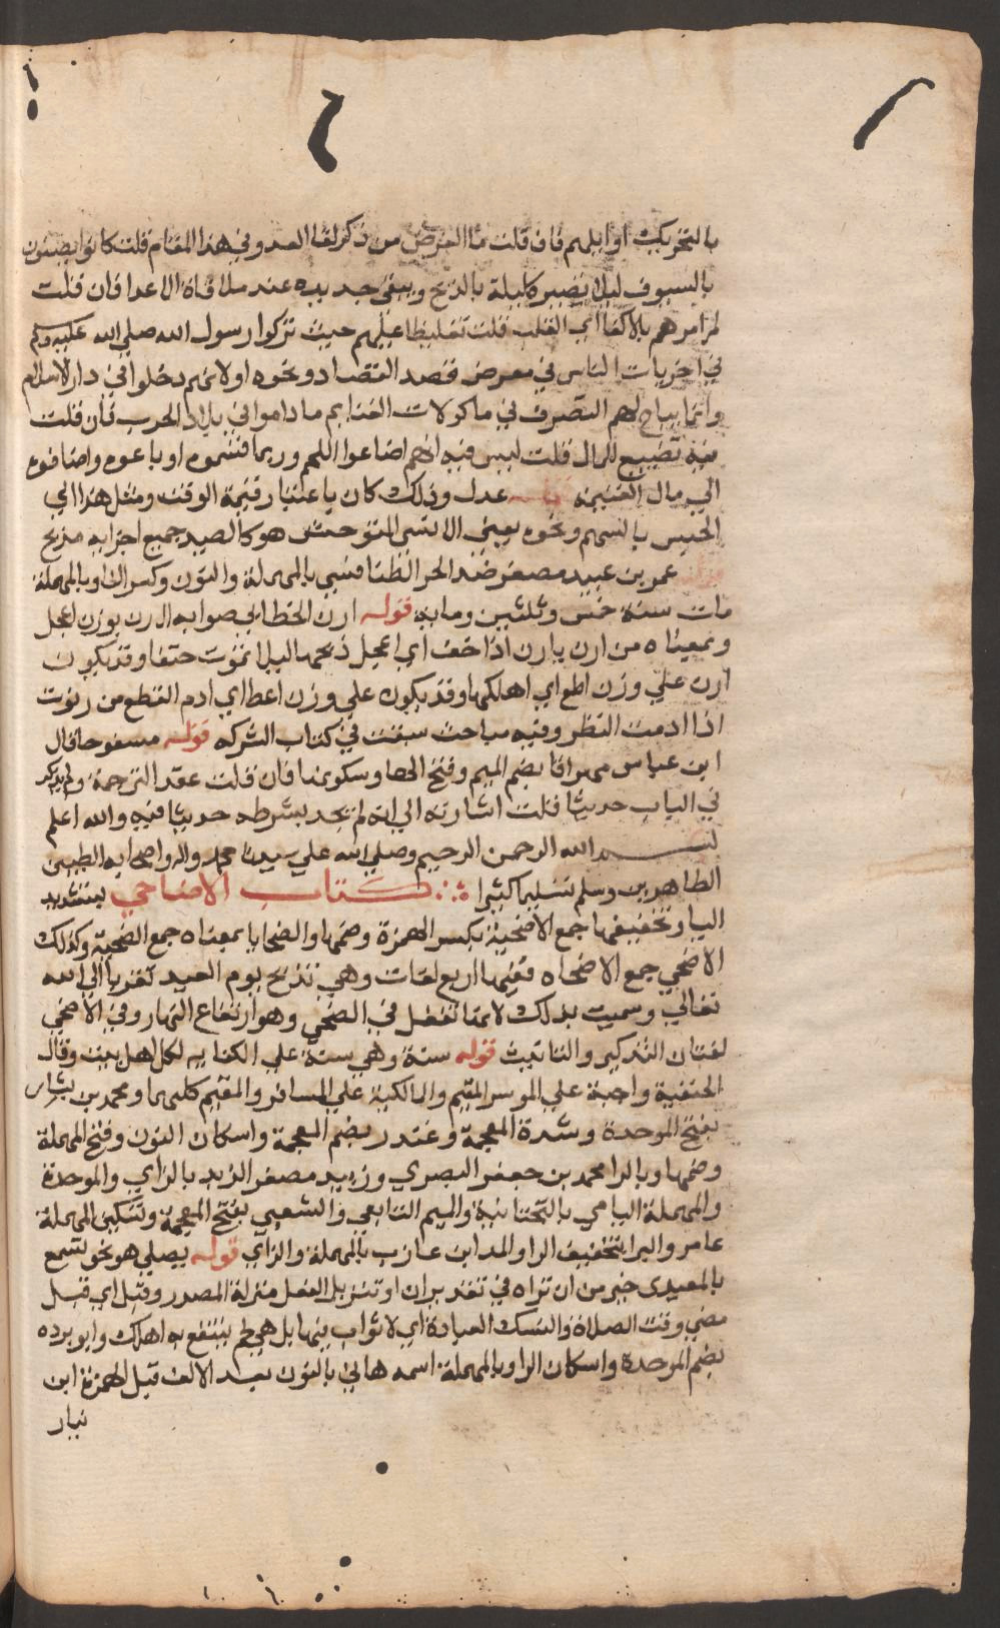 بالتحريك اوابلهم فان قلت ما الغرض من ذكر لقا العدو في هذا المقام قلت كانوا يضنون
بالسيوف ليلا يصير كليلة بالذبح ويبقى حديده عند ملاقاة الاعدا فان قلت
لم امرهم بالاكفا اي القلب قلت تغليظا عليهم حيث تركوا رسول الله صلي الله عليه وسلم
في اخريات الناس في معرض قصد القصاد ونحوه اولانهم دخلوا في دار الاسلام
وانما يباح لهم التصرف في ماكولات الغنايم ما داموا في بلاد الحرب فان قلت
فيه تضييع للمال قلت ليس فيه انهم اضاعوا اللحم وربما قسموه او باعوه واضافوه
الي مال الغنيمة عدل وذلك كان باعتبار قيمة الوقت ومثل هذا اي
الحبس بالسهم ونحوه يعني الانسى المتوحش هو كالصيد جميع اجزايه مذبح
عمر بن عبيد مصغر ضد الحر الطنافسي بالمهملة والنون وكسر الفا وبالمهملة
مات سنة خمس وثلثين ومايه قوله ارن الخطابي صوابه اارن بوزن اعجل
وبمعناه من ارن يارن اذا خف اي اعجل ذبحها ليلا تموت حتفا وقد يكون
ارن علي وزن اطع اي اهلكها وقد يكون علي وزن اعط اي ادم القطع من رنوت
اذا ادمت النظر وفيه مباحث سبقت في كتاب الشركه قوله مسفوحا قال
ابن عباس مهراقا بضم الميم وفتح الها وسكونها فان قلت عقد الترجمة ولم يذكر
في الباب حديثا قلت اشارته الي انه لم يجد بشرطه حديثا فيه والله اعلم
بسم الله الرحمن الرحيم وصلي الله علي سيدنا محمد واله واصحابه الطيبين
الطاهرين وسلم تسليما كثيرا كتاب الاضاحي بتشديد
اليا وتخفيفها جمع الاضحية بكسر الهمزة وضمها والضحايا بمعناه جمع الضحية وكذلك
الاضحي جمع الاضحاه ففيها اربع لغات وهي تذبح يوم العيد تقربا الي الله
تعالي وسميت بذلك لانها تفعل في الضحي وهو ارتفاع النهار وفي الاضحي
لغتان التذكير والتانيث قوله سنة وهي سنة علي الكفايه لكل اهل بيت وقال
الحنفية واجبة علي الموسر المقيم والمالكية علي المسافر والمقيم كليهما ومحمد بن بشار
بفتح الموحدة وشدة المعجمة وغندر بضم المعجمة واسكان النون وفتح المهملة
وضمها وبالرا محمد بن جعفر البصري وزبيد مصغر الزبد بالزاي والموحدة
والمهملة اليامي بالتحتانية والميم التابعي والشعبي بفتح المعجمة وتسكين المهملة
عامر والبرا بتخفيف الرا والمد ابن عازب بالمهملة والزاي قوله يصلي هو نحو تسمع
بالمعيدى خير من ان تراه في تقدير ان او تنزيل الفعل منزلة المصدر وقبل اي قبل
مضي وقت الصلاة والنسك العبادة اي لا ثواب فيها بل هي لحم ينتفع به اهلك وابو برده
بضم الموحدة واسكان الرا وبالمهملة اسمه هاني بالنون بعد الالف قبل الهمزة ابن
نيار